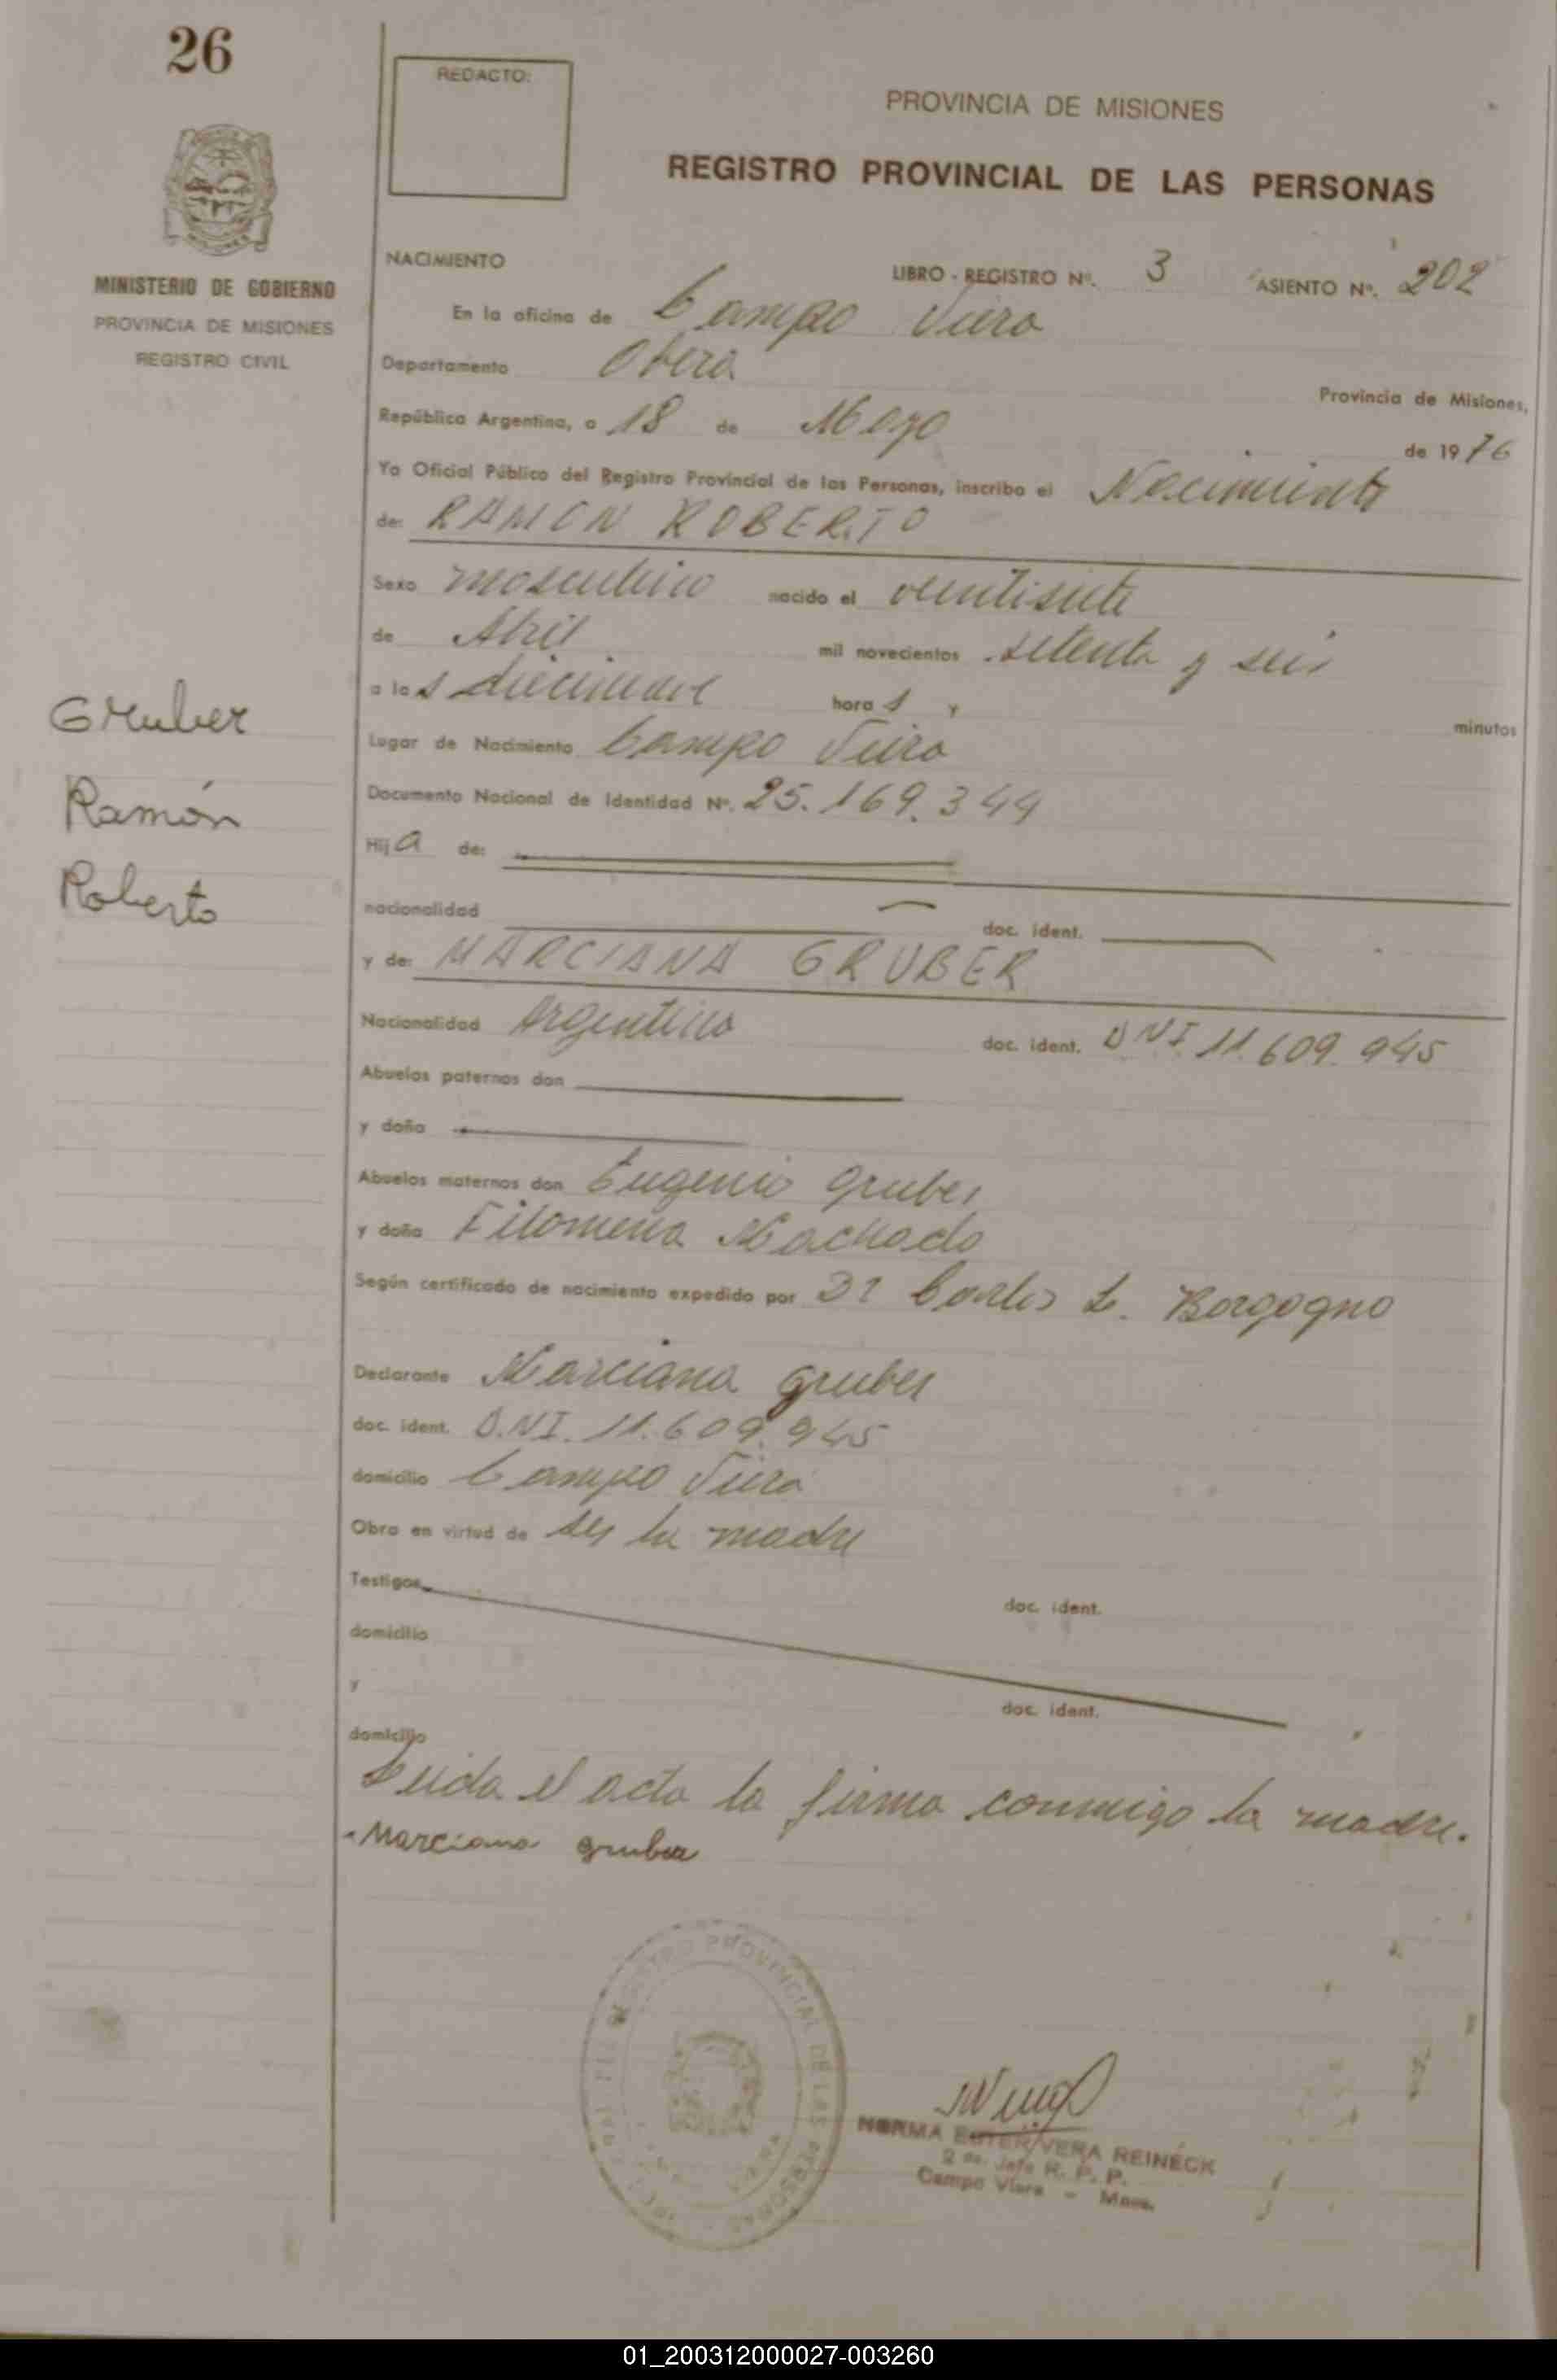 26
REDACTO:
PROVINCIA DE MISIONES
REGISTRO PROVINCIAL DE LAS PERSONAS
MINISTERIO DE GOBIERNO
PROVINCIA DE MISIONES
REGISTRO CIVIL
NACIMIENTO LIBRO - REGISTRO Nº. 3 ASIENTO Nº. 202
En la oficina de Campo Viera
Departamento Oberá Provincia de Misiones,
República Argentina, a 18 de Mayo de 1976
Yo Oficial Público del Registro Provincial de las Personas, inscribo el Nacimiento
de: RAMON ROBERTO
Sexo masculino nacido el veintisiete
de Abril mil novecientos setenta y seis
a las diecinueve horas y minutos
Gruber
Ramón
Roberto
Lugar de Nacimiento Campo Viera
Documento Nacional de Identidad Nº. 25.169.344
Hija de:
nacionalidad doc. ident.
y de: MARCIANA GRUBER
Nacionalidad Argentina doc. ident. DNI 11.609.945
Abuelos paternos don
y doña
Abuelos maternos don Eugenio Gruber
y doña Filomena Machado
Según certificado de nacimiento expedido por Dr Carlos L. Borgogno
Declarante Marciana Gruber
doc. ident. D.N.I. 11.609.945
domicilio Campo Viera
Obra en virtud de ser la madre
Testigos doc. ident.
domicilio
y doc. ident.
domicilio
Leida el acta la firma conmigo la madre.
Marciana gruber
REGISTRO PROVINCIAL DE LAS PERSONAS
NORMA ESTER VERA REINECK
2 da. Jefe R. P. P.
Campo Viera - Mnes.
01_200312000027-003260